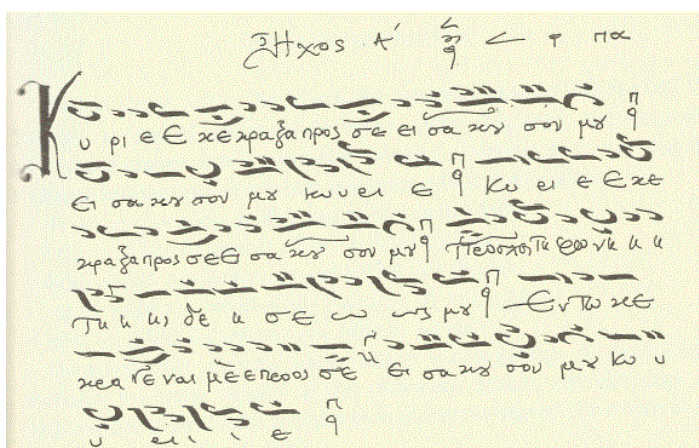 Ἦχος Α΄ πα
Κυ ρι ε Ε κε κραξα προς σε ει σα κου σον μου
Ει σα κου σον μου Κυ υ ρι ε Κυ ρι ε Ε κε
κραξα προς σε Ει σα κου σον μου προσχες τη φωνη η η
τη η η ης δε η σε ω ως μου Εν τω κε
κρα γε ναι με ε προς σε Ει σα κου σον μου Κυ υ
υ ρι ι ι ε